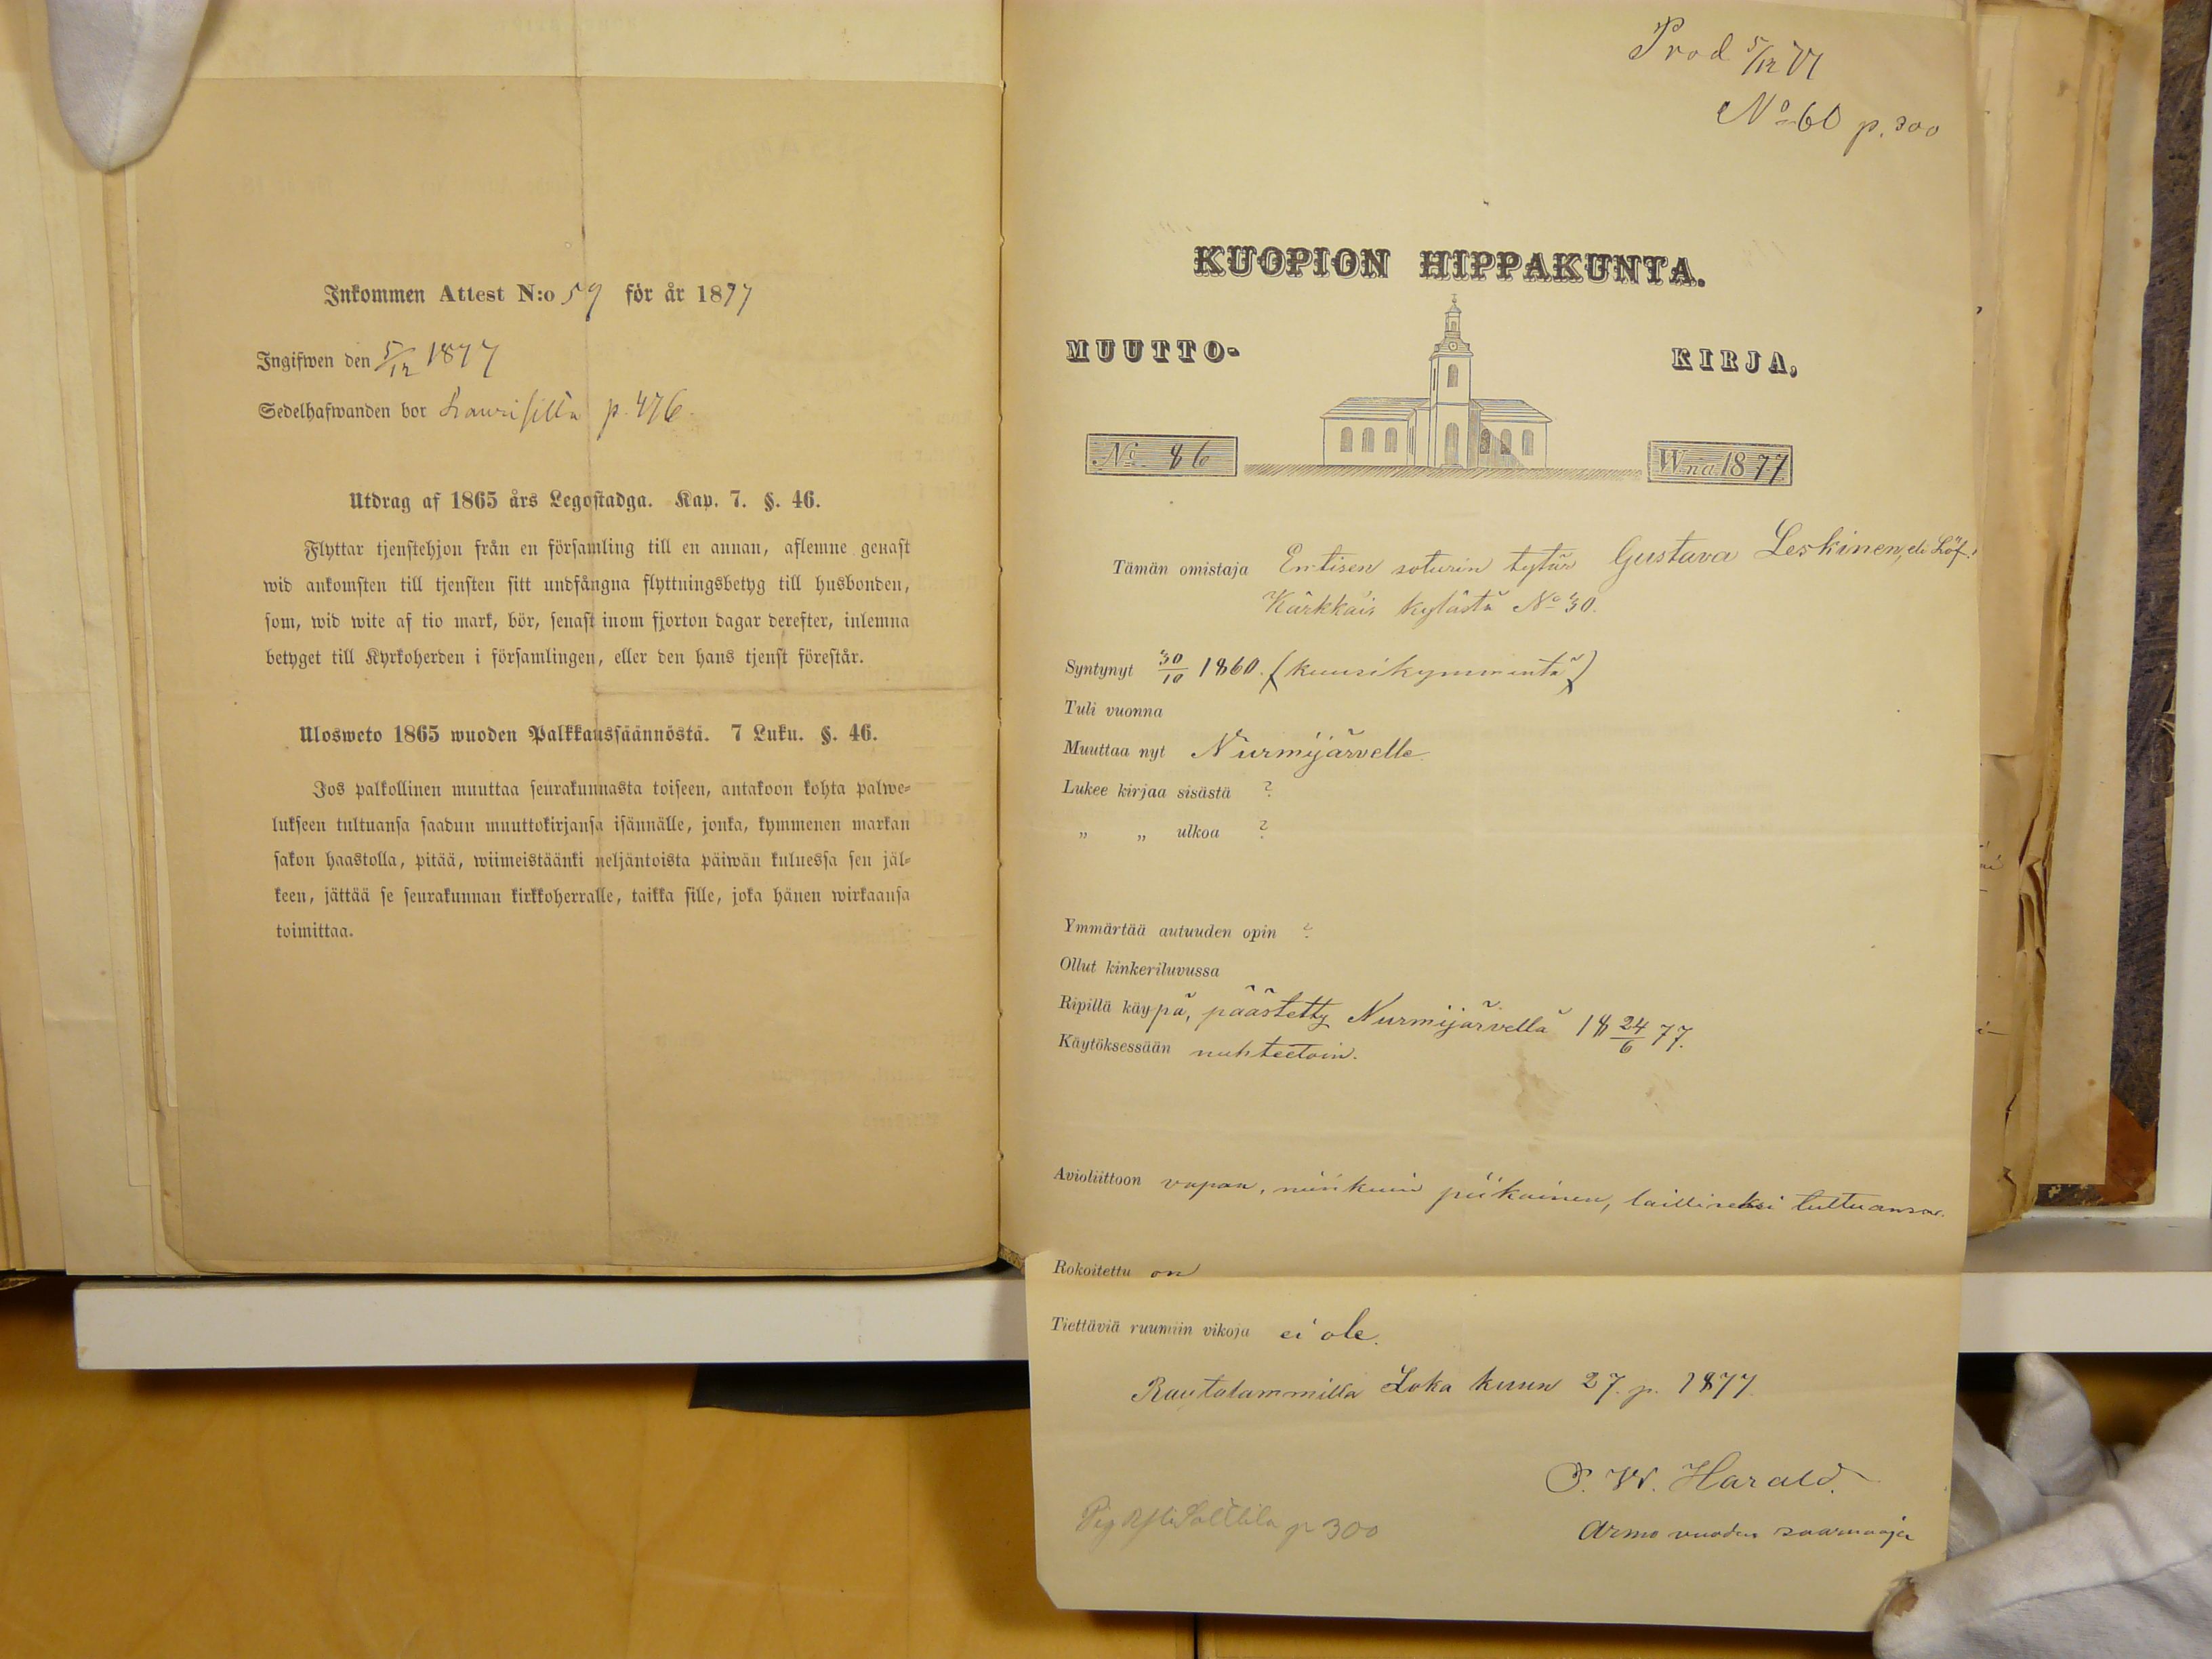 Inkommen Attest N:o 59 för år 1877
Ingifwen den 5/12 1877
Sedelhafwanden bor Laurisilla p. 476.
Utdrag af 1865 års Legostadga. Kap. 7. §. 46.
Flyttar tjenstehjon från en församling till en annan, aflemne genast
wid ankomsten till tjensten sitt undfångna flyttningsbetyg till husbonden,
som, wid wite af tio mark, bör, senast inom fjorton dagar derefter, inlemna
betyget till Kyrkoherden i församlingen, eller den hans tjenst förestår.
Ulosweto 1865 wuoden Palkkaussäännöstä. 7 Luku. §. 46.
Jos palkollinen muuttaa seurakunnasta toiseen, antakoon kohta palwe-
lukseen tultuansa saadun muuttokirjansa isännälle, jonka, kymmenen markan
sakon haastolla, pitää, wiimeistäänki neljäntoista päiwän kuluessa sen jäl-
keen, jättää se seurakunnan kirkkoherralle, taikka sille, joka hänen wirkaansa
toimittaa.
Prod 5/12 77
No 60 p. 300
KUOPION HIPPAKUNTA.
MUUTTO- KIRJA,
No. 86 Wna 1877
Tämän omistaja Entisen soturin tytär Gustava Leskinen, eli Löf.
Kärkkäis kylästä No 30.
Syntynyt 30/10 1860. (kuusikymmentä)
Tuli vuonna
Muuttaa nyt Nurmijärvelle
Lukee kirjaa sisästä ?
„ „ ulkoa ?
Ymmärtää autuuden opin ?
Ollut kinkeriluvussa
Ripillä käypä, päästetty Nurmijärvellä 18 24/6 77.
Käytöksessään nuhteetoin.
Avioliittoon vapaa, niinkuin piikainen, lailliseksi tultuansa.
Rokoitettu on
Tiettäviä ruumiin vikoja ei ole.
Rautalammilla Loka kuun 27. p. 1877.
P. W. Harald.
Armo vuoden saarnaaja
p 300